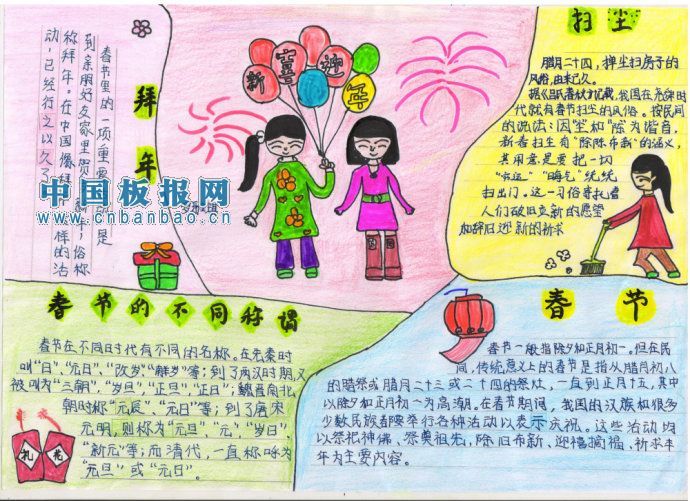 拜年
春节里的一项重要
是
到亲朋好友家里贺
俗称
称拜年。在中国
样的活
动,已经
之以久了
中国板报网
www.cnbanbao.cn
新
喜
迎
年
扫尘
腊月二十四,掸尘扫房子的
风俗,由来已久。
我国在尧舜时
代就有春节扫尘的风俗。按民间
的说法:因"尘"和"陈"为谐音,
新春扫尘有"除陈布新"的涵义,
其用意是要把一切
"穷运""晦气"统统
扫出门。这一习俗寄托着
人们破旧立新的愿望
和辞旧迎新的祈求
春节的不同称谓
春节在不同时代有不同的名称。在先秦时
叫"
日","元日","改岁","献岁"等;到了两汉时期,又
被叫为"三朝","岁旦","正旦","正日";魏晋南北
朝时称"元辰","元日"等;到了唐宋
元明,则称为"元旦","元","岁日",
"新元"等;而清代,一直称呼为
"元旦"或"元日"。
礼
花
春节
春节一般指除夕和正月初一。但在民
间,传统意义上的春节是指从腊月初八
的腊祭或腊月二十三或二十四的祭灶,一直到正月十五,其中
以除夕和正月初一为高潮。在春节期间,我国的汉族和很多
少数民族都要举行各种活动以表示庆祝。这些活动均
以祭祀神佛、祭奠祖先,除旧布新、迎禧接福,祈求丰
年为主要内容。